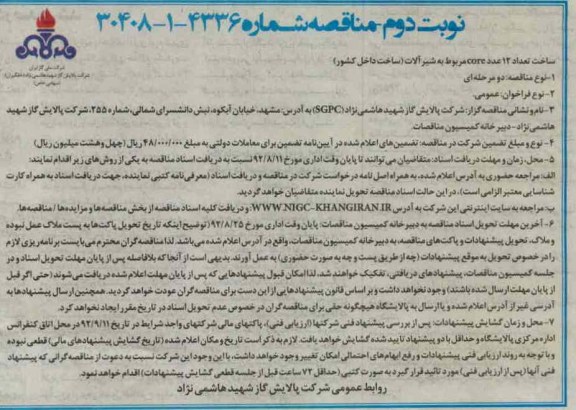 نوبت دوم-مناقصه شماره ۴۳۳۶-۱-۳۰۴۰۸
شرکت ملی گاز ایران
شرکت پالایش گاز شهید هاشمی نژاد (خانگیران)
(سهامی خاص)
ساخت تعداد ۱۲ عدد core مربوط به شیرآلات (ساخت داخل کشور)
۱-نوع مناقصه: دو مرحله ای
۲-نوع فراخوان: عمومی.
۳-نام و نشانی مناقصه گزار: شرکت پالایش گاز شهید هاشمی نژاد (SGPC) به آدرس: مشهد، خیابان آبکوه، نبش دانشسرای شمالی، شماره ۲۵۵، شرکت پالایش گاز شهید
هاشمی نژاد-دبیرخانه کمیسیون مناقصات.
۴- نوع و مبلغ تضمین شرکت در مناقصه: تضمین های اعلام شده در آیین نامه تضمین برای معاملات دولتی به مبلغ ۴۸/۰۰۰/۰۰۰ ریال (چهل و هشت میلیون ریال)
۵- محل، زمان و مهلت دریافت اسناد: متقاضیان می توانند تا پایان وقت اداری مورخ ۹۲/۸/۱۱ نسبت به دریافت اسناد مناقصه به یکی از روش های زیر اقدام نمایند:
الف: مراجعه حضوری به آدرس اعلام شده، به همراه اصل نامه درخواست شرکت در مناقصه و دریافت اسناد (معرفی نامه کتبی نماینده، جهت دریافت اسناد به همراه کارت
شناسایی معتبر الزامی است)، در این حالت اسناد مناقصه تحویل نماینده متقاضیان خواهد گردید.
ب: مراجعه به سایت اینترنتی این شرکت به آدرس WWW.NIGC-KHANGIRAN.IR و دریافت کلیه اسناد مناقصه از بخش مناقصه ها و مزایده ها / مناقصه ها.
۶- آخرین مهلت تحویل اسناد مناقصه به دبیرخانه کمیسیون مناقصات: پایان وقت اداری مورخ ۹۲/۸/۲۵ (توضیح اینکه تاریخ تحویل پاکت ها به پست ملاک عمل نبوده
و ملاک، تحویل پیشنهادات و پاکت های مناقصه، به دبیرخانه کمیسیون مناقصات، واقع در آدرس اعلام شده می باشد. لذا مناقصه گران محترم می بایست برنامه ریزی لازم
را در خصوص تحویل به موقع پیشنهادات (چه از طریق پست و چه به صورت حضوری) به عمل آورند. بدیهی است از آنجا که بلافاصله پس از پایان مهلت تحویل اسناد و در
جلسه کمیسیون مناقصات، پیشنهادهای دریافتی، تفکیک خواهند شد، لذا امکان قبول پیشنهادهایی که پس از پایان مهلت اعلام شده دریافت می شوند (حتی اگر قبل
از پایان مهلت ارسال شده باشند) وجود نخواهد داشت و بر اساس قانون پیشنهادهایی از این دست برای مناقصه گران عودت خواهد گردید. همچنین ارسال پیشنهادها به
آدرسی غیر از آدرس اعلام شده و یا ارسال به پالایشگاه هیچگونه حقی برای مناقصه گران در خصوص عدم تحویل اسناد در تاریخ مقرر ایجاد نخواهد کرد.
۷- محل و زمان گشایش پیشنهادات: پس از بررسی پیشنهاد فنی شرکتها (ارزیابی فنی)، پاکتهای مالی شرکتهای واجد شرایط در تاریخ ۹۲/۹/۱۱ در محل اتاق کنفرانس
اداره مرکزی پالایشگاه و حداقل با دو پیشنهاد تایید شده گشایش خواهد یافت. لازم به ذکر است تاریخ و مکان اعلام شده (تاریخ گشایش پیشنهادهای مالی) قطعی نبوده
و با توجه به روند ارزیابی فنی پیشنهادات و رفع ابهام های احتمالی امکان تغییر وجود خواهد داشت، با این وجود این شرکت نسبت به دعوت از مناقصه گرانی که پیشنهاد
فنی آنها (پس از ارزیابی فنی) مورد تائید قرار گیرد به صورت کتبی (حداقل ۷۲ ساعت قبل از جلسه قطعی گشایش پیشنهادات) اقدام خواهد نمود.
روابط عمومی شرکت پالایش گاز شهید هاشمی نژاد